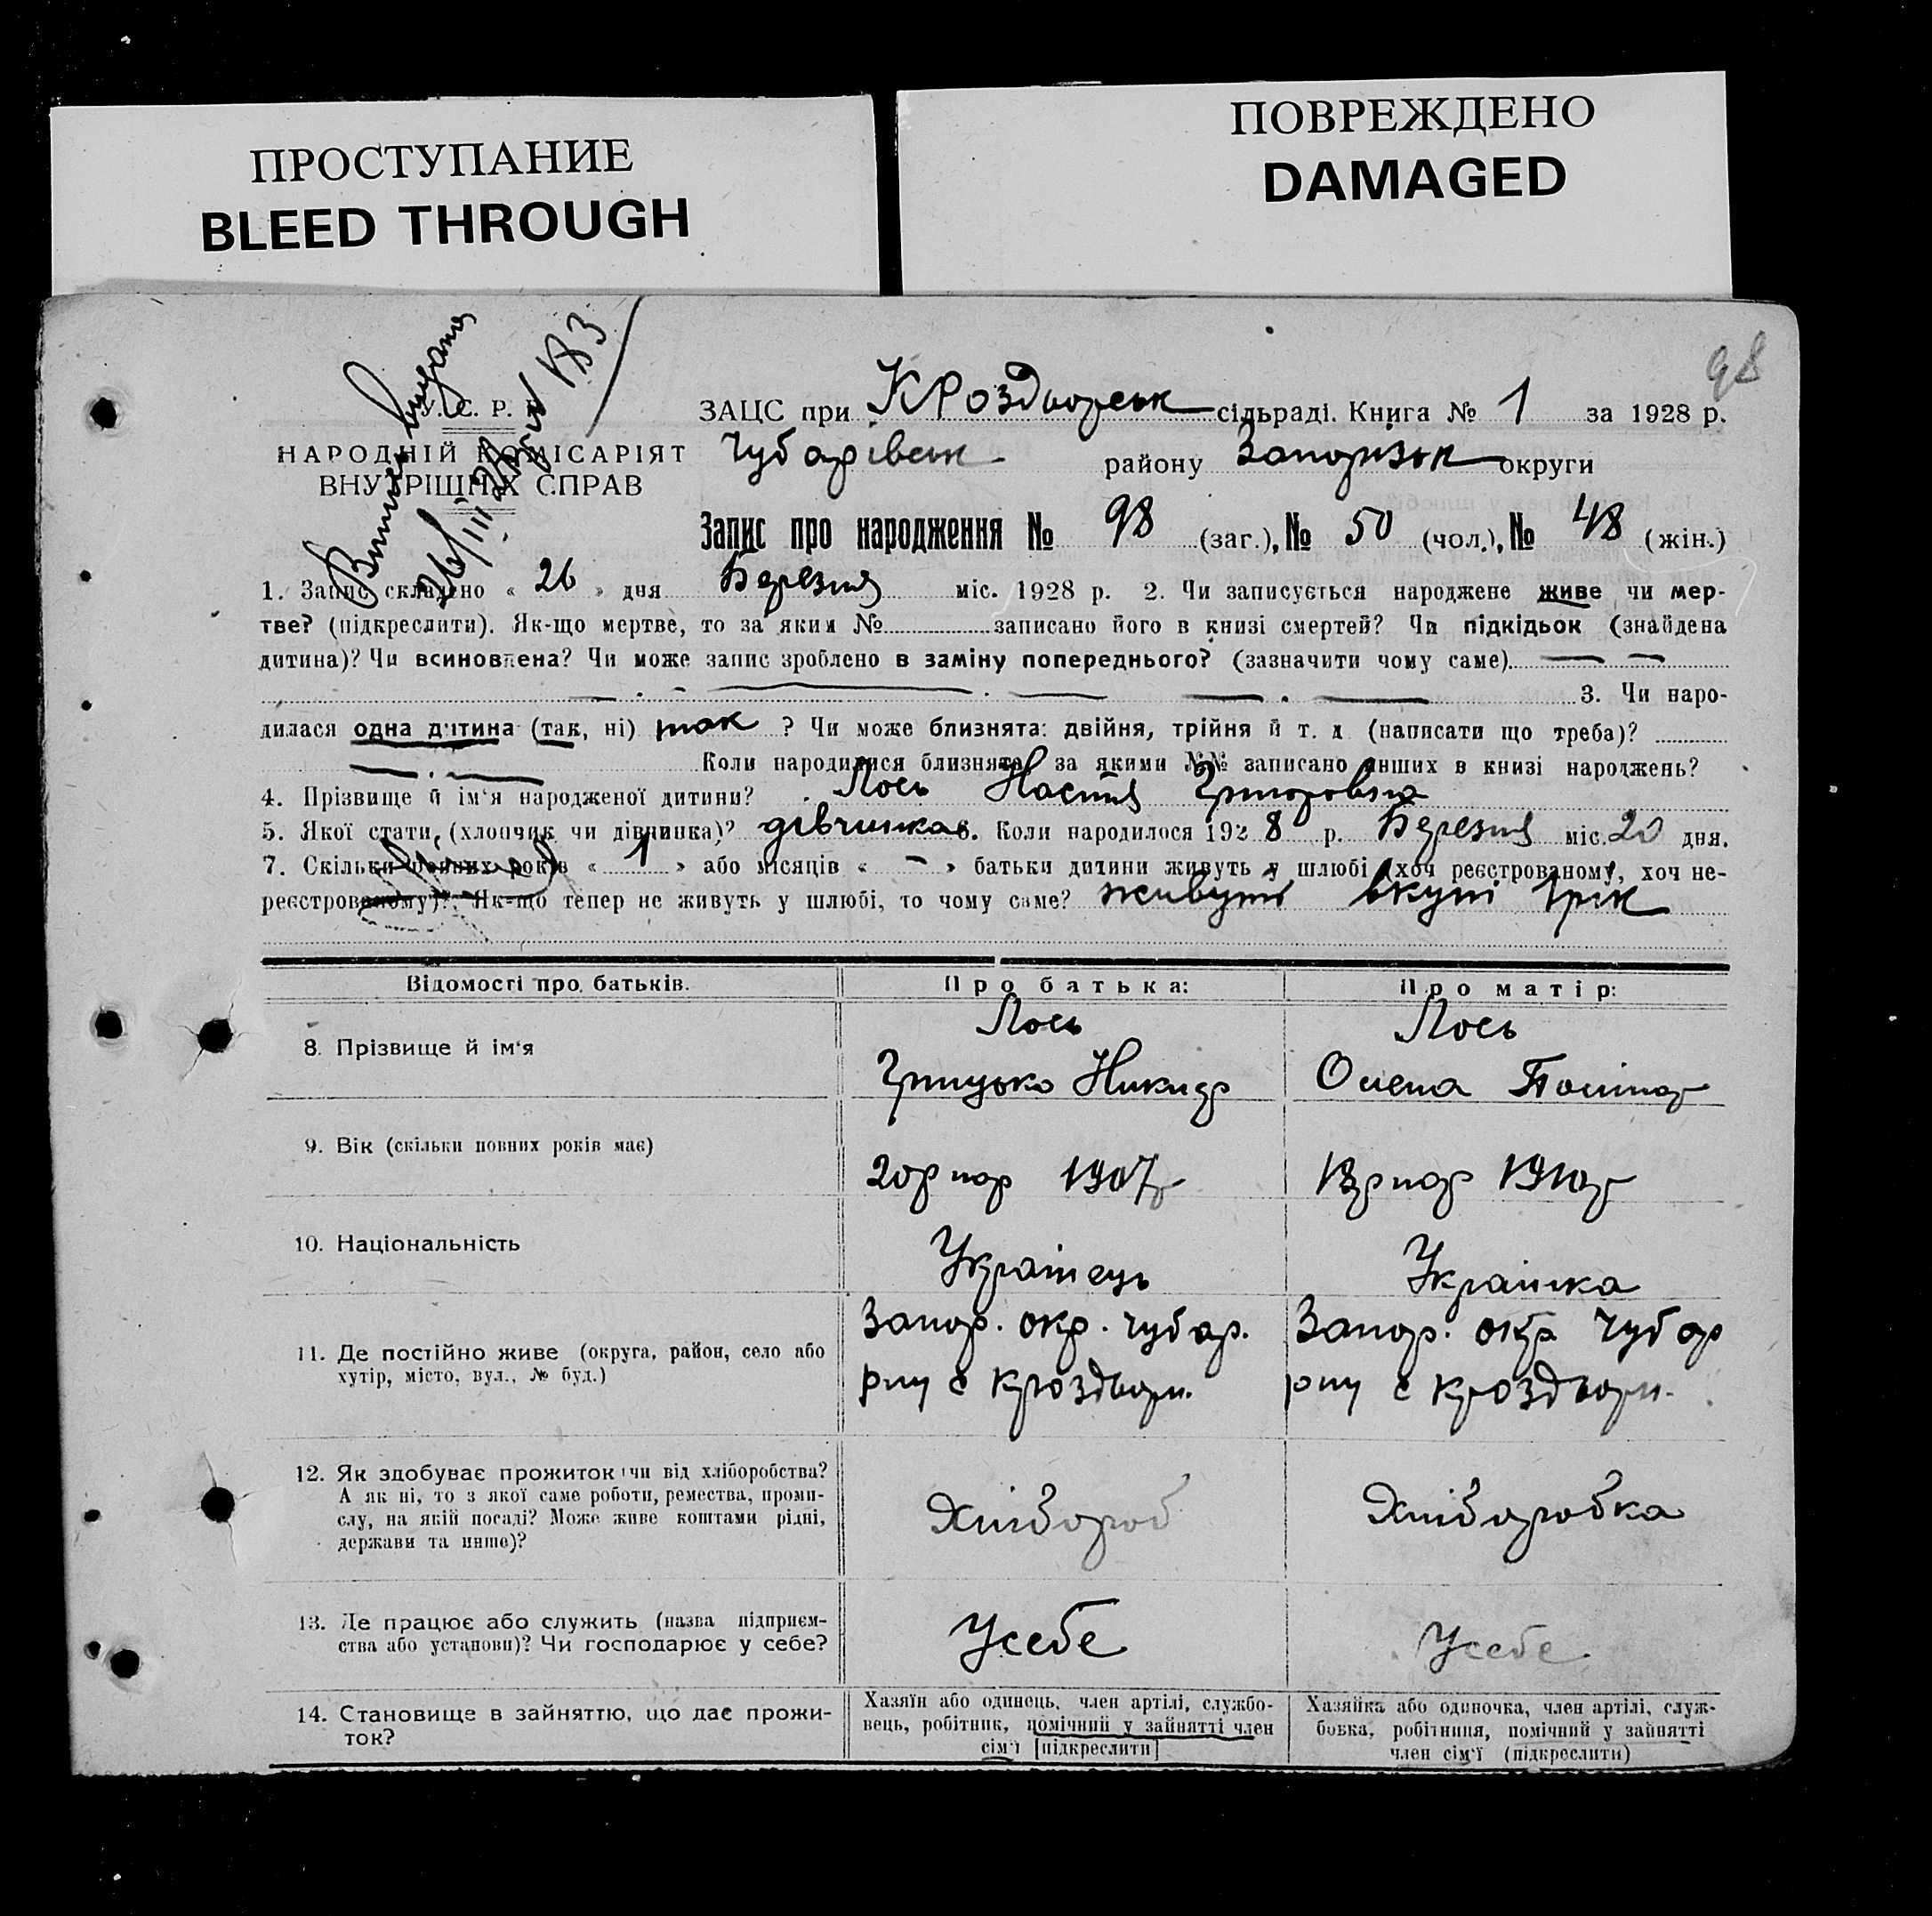 ПРОСТУПАНИЕ
BLEED THROUGH
ПОВРЕЖДЕНО
DAMAGED
98
Витяг видано
26/III 28 р № 183
У. С. Р. Р.
НАРОДНІЙ КОМІСАРІЯТ
ВНУТРІШНІХ СПРАВ
ЗАЦС при КРоздорськ сільраді. Книга № 1 за 1928 р.
Чубарівськ району Запорізьк округи
Запис про народження № 98 (заг.), № 50 (чол.), № 48 (жін.)
1. Запис складено « 26 » дня Березня міс. 1928 р. 2. Чи записується народжене живе чи мер-
тве? (підкреслити). Як-що мертве, то за яким № записано його в книзі смертей? Чи підкідьок (знайдена
дитина)? Чи всиновлена? Чи може запис зроблено в заміну попереднього? (зазначити чому саме)
3. Чи наро-
дилася одна дитина (так, ні) так ? Чи може близнята: двійня, трійня й т. д. (написати що треба)?
Коли народилися близнята, за якими №№ записано инших в книзі народжень?
4. Прізвище й ім'я народженої дитини? Лось Настя Григоровна
5. Якої стати, (хлопчик чи дівчинка)? дівчинка 6. Коли народилося 1928 р. Березня міс. 20 дня.
7. Скільки повних років « 1 » або місяців « - » батьки дитини живуть у шлюбі (хоч реєстрованому, хоч не-
реєстрованому)? Як-що тепер не живуть у шлюбі, то чому саме? живуть вкупі 1 рік
Відомості про батьків.
Про батька:
Про матір:
8. Прізвище й ім'я
Лось
Грицько Никиф
Лось
Олена
9. Вік (скільки повних років має)
20р нар 1907р
18р нар 1910р
10. Національність
Українець
Українка
11. Де постійно живе (округа, район, село або
хутір, місто, вул., № буд.)
Запор. окр. Чубар.
рну с Кроздори.
Запор. окр Чубар
рну с Кроздори.
12. Як здобуває прожиток чи від хліборобства?
А як ні, то з якої саме роботи, ремества, проми-
слу, на якій посаді? Може живе коштами рідні,
держави та инше)?
Хлібороб
Хліборобка
13. Де працює або служить (назва підприєм-
ства або установи)? Чи господарює у себе?
Усебе
Усебе
14. Становище в зайняттю, що дає прожи-
ток?
Хазяїн або одинець, член артілі, службо-
вець, робітник, помічний у зайнятті член
сім'ї [підкреслити]
Хазяйка або одиночка, член артілі, служ-
бовка, робітниця, помічний у зайнятті
член сім'ї (підкреслити)